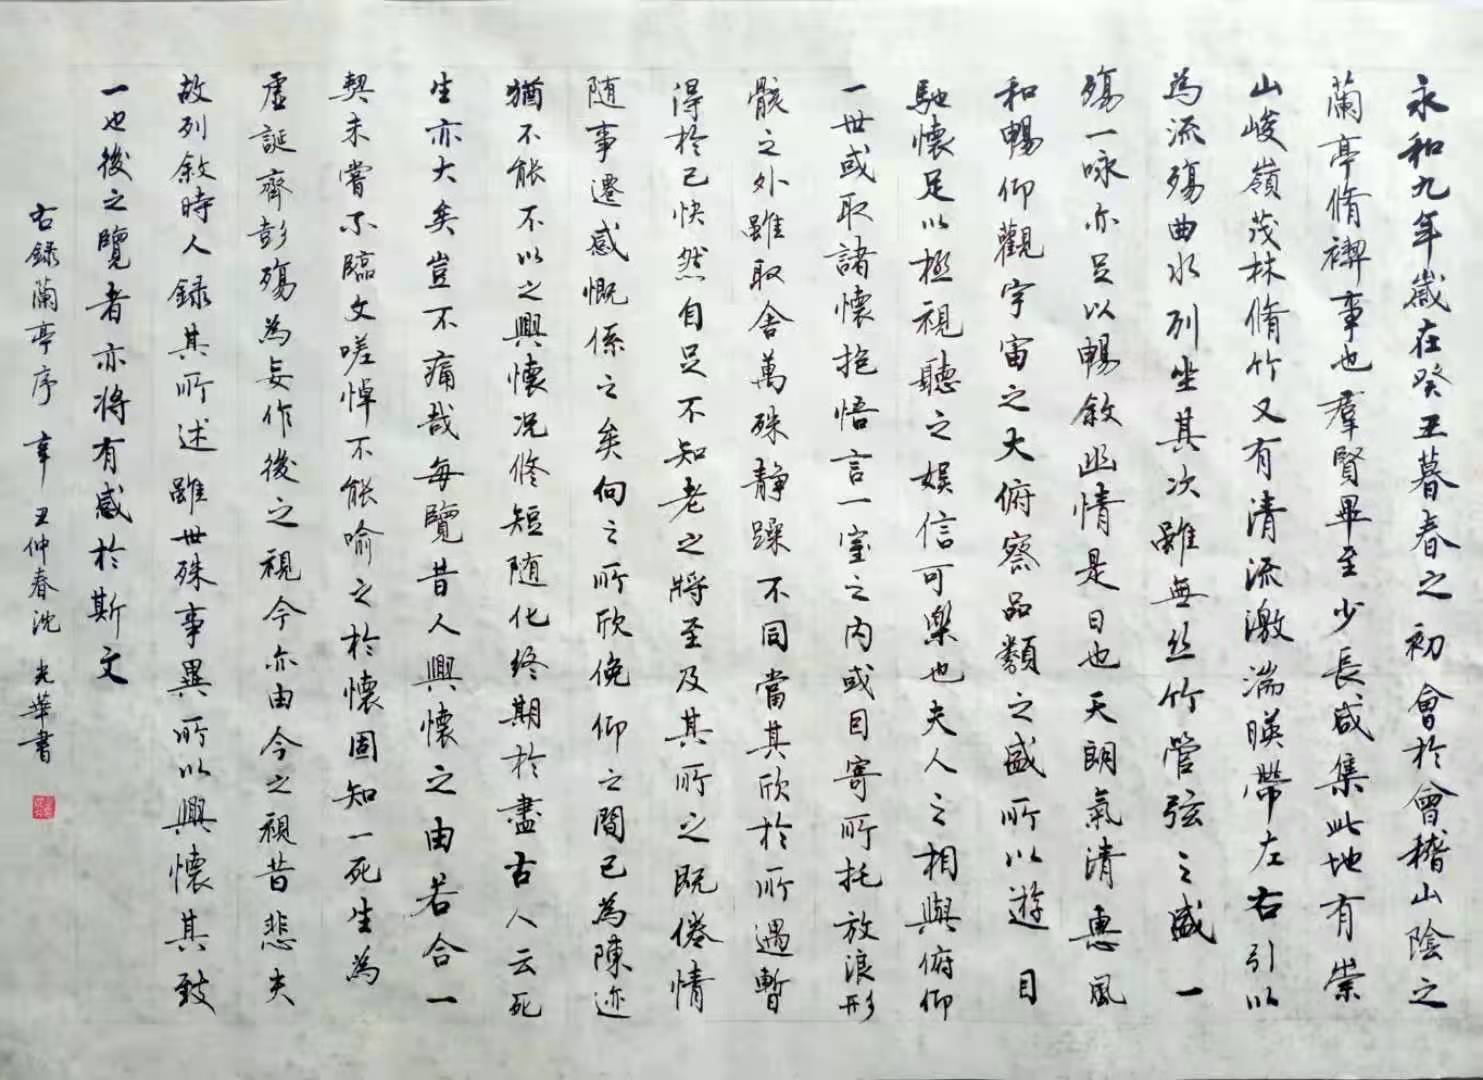 永和九年歲在癸丑暮春之初會於會稽山陰之
蘭亭脩禊事也羣賢畢至少長咸集此地有崇
山峻嶺茂林脩竹又有清流激湍暎帶左右引以
為流殤曲水列坐其次雖無丝竹管弦之盛一
殤一咏亦足以暢敘幽情是日也天朗氣清惠風
和暢仰觀宇宙之大俯察品類之盛所以遊目
馳懷足以極視聽之娱信可樂也夫人之相與俯仰
一世或取諸懷抱悟言一室之内或目寄所托放浪形
骸之外雖取舍萬殊静躁不同當其欣於所遇暫
得於己快然自足不知老之將至及其所之既倦情
随事遷感慨係之矣向之所欣俛仰之間已為陳迹
猶不能不以之興懷况修短随化终期於盡古人云死
生亦大矣豈不痛哉每覽昔人興懷之由若合一
契未嘗不臨文嗟悼不能喻之於懷固知一死生為
虚誕齊彭殤為妄作後之視今亦由今之視昔悲夫
故列敘時人録其所述雖世殊事異所以興懷其致
一也後之覽者亦将有感於斯文
右録蘭亭序 辛丑仲春沈光華書